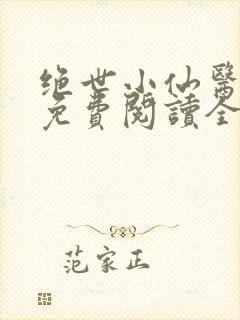 绝世小仙醫
免費閱讀全
范家正